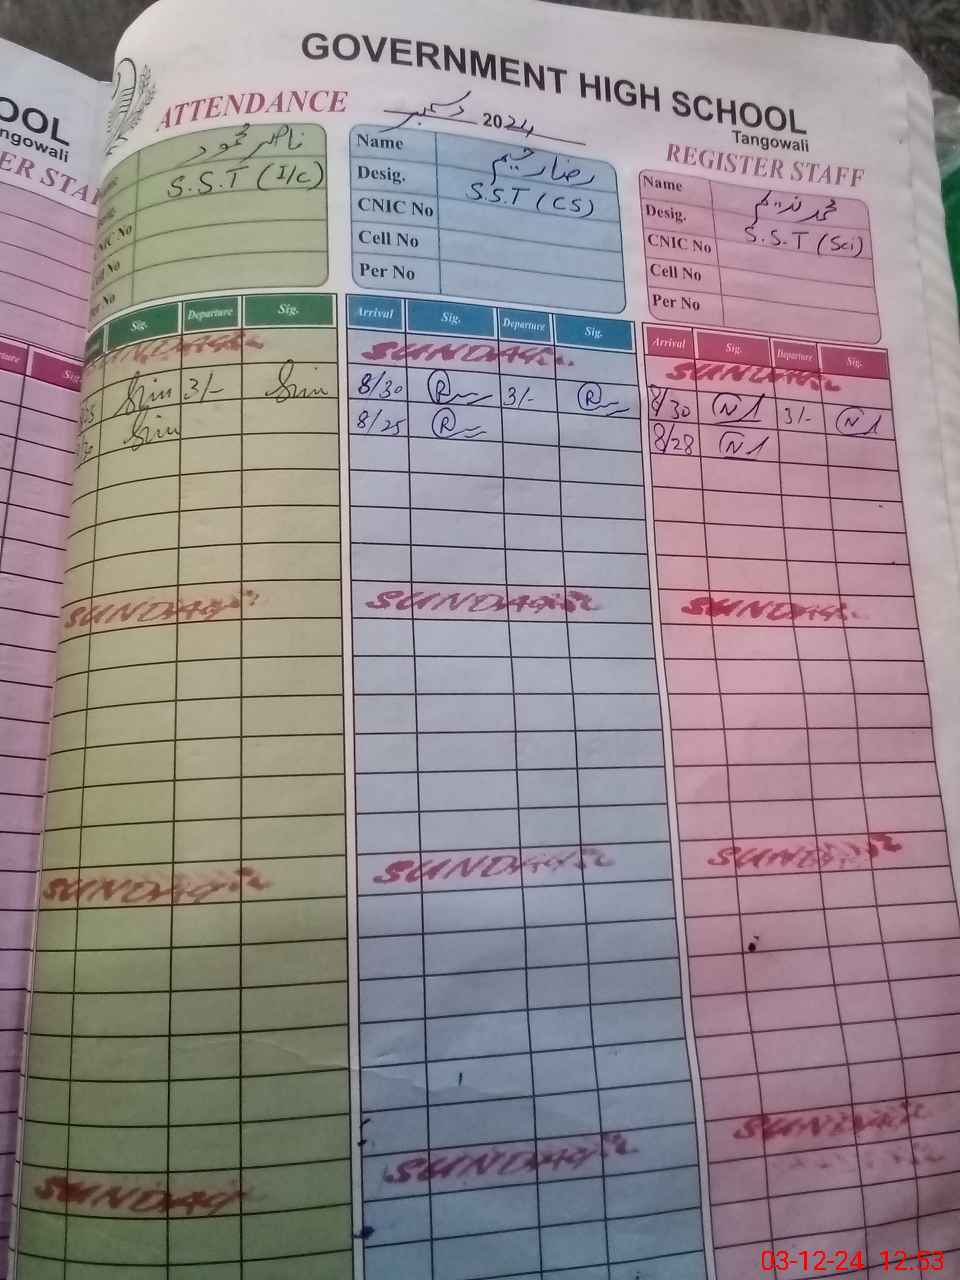 OOL
ngowali
ER STA
GOVERNMENT HIGH SCHOOL
Tangowali
ATTENDANCE
دسمبر 2024
REGISTER STAFF
ناصر محمود
S.S.T (I/C)
CNIC No
Cell No
Per No
Name رضا رحیم
Desig. S.S.T (CS)
CNIC No
Cell No
Per No
Name محمد ندیم
Desig. S.S.T (Sci)
CNIC No
Cell No
Per No
ture Sig.
Sig. Departure Sig.
Arrival Sig. Departure Sig.
Arrival Sig. Departure Sig.
SUNDAY SUNDAY SUNDAY
3/- 8/30 R 3/- R 8/30 N 3/- N
8/25 R 8/28 N
SUNDAY SUNDAY SUNDAY
SUNDAY SUNDAY SUNDAY
SUNDAY SUNDAY SUNDAY
03-12-24 12:53